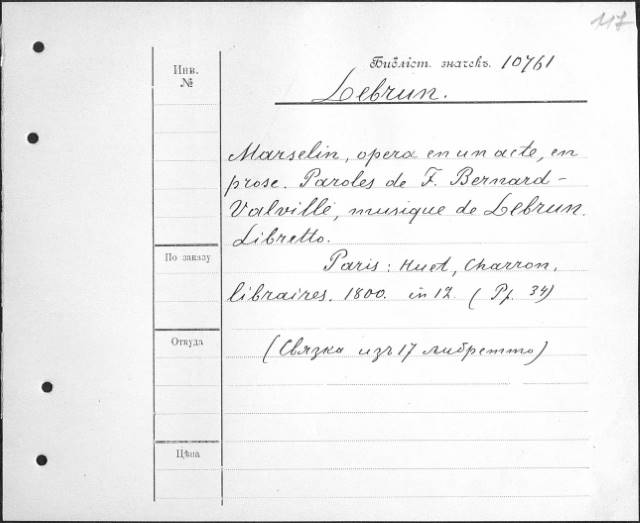 117
Инв.
№
Библіот. значекъ. 10761
Lebrun.
Marselin, opera en un acte, en
prose. Paroles de F. Bernard-
Valville, musique de Lebrun.
Libretto.
По заказу
Paris: Huet, Charron,
libraires. 1800. in 12. (Pf. 34)
Откуда
(Связка изъ 17 либретто)
Цѣна